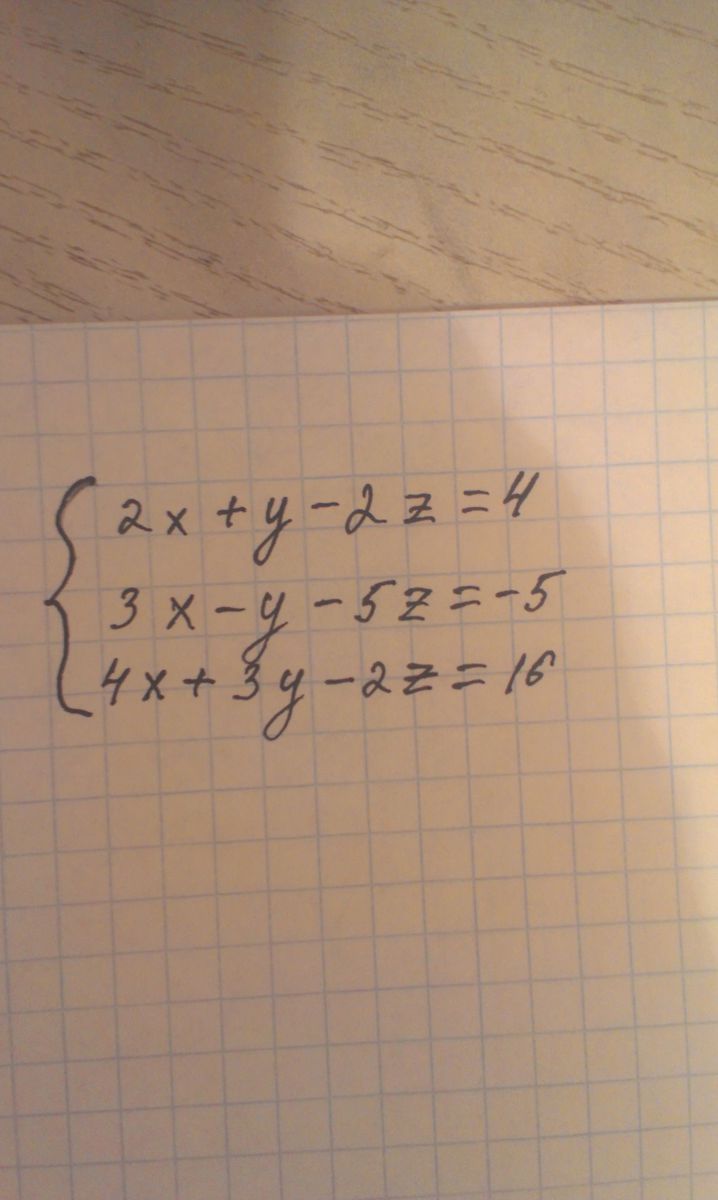 2x + y - 2z = 4
3x - y - 5z = -5
4x + 3y - 2z = 16